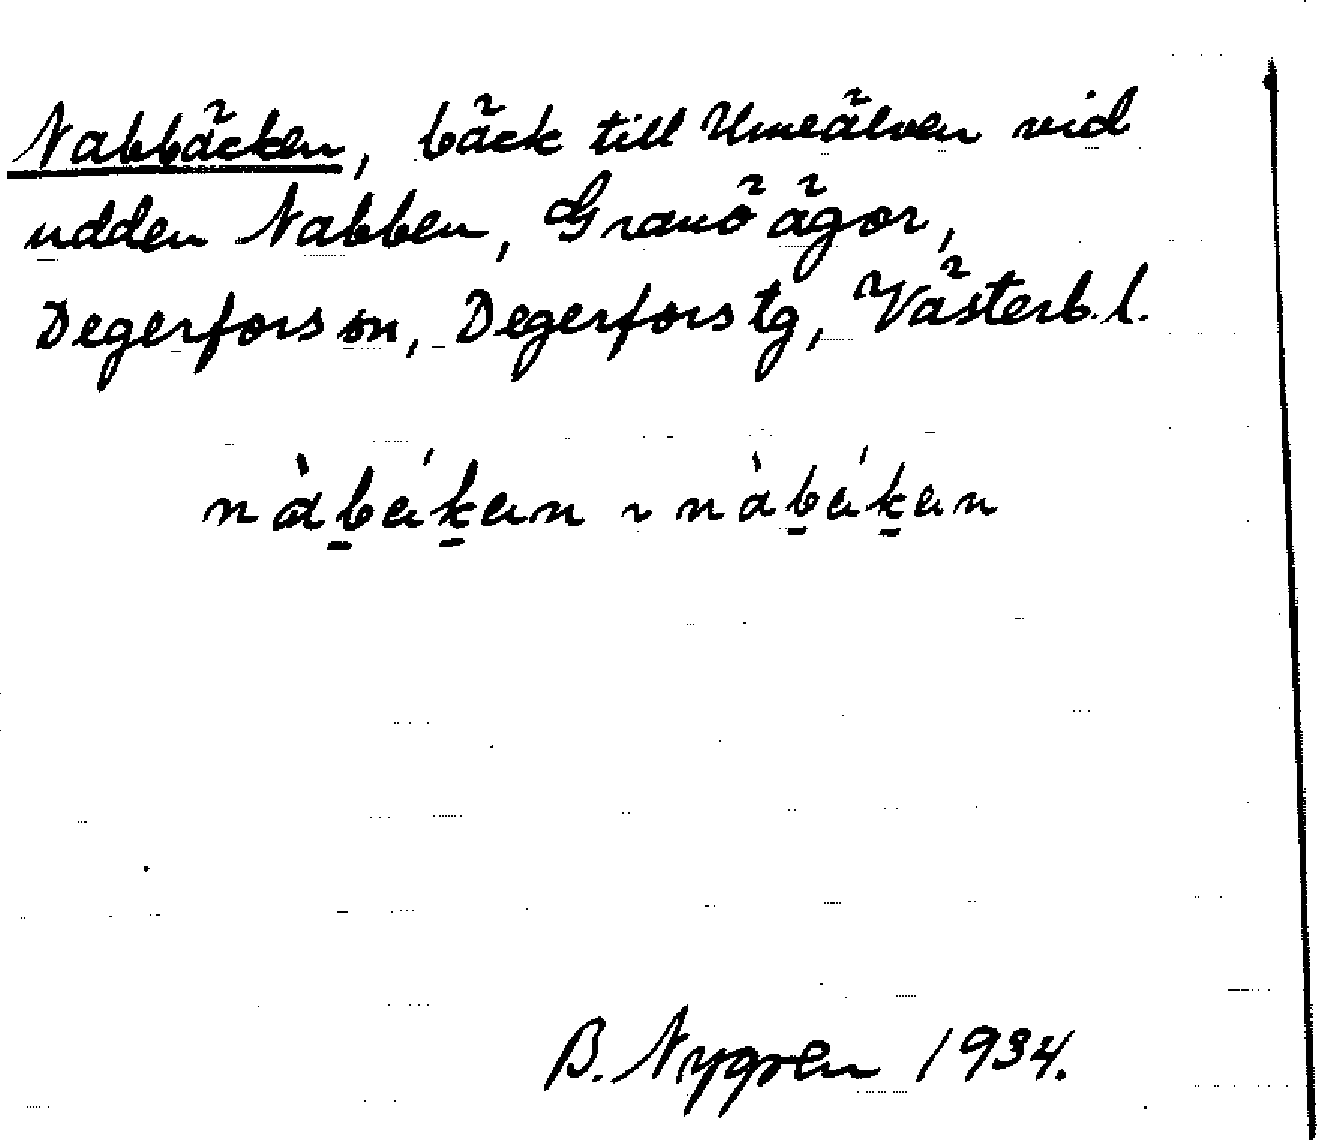 Nabbäcken, bäck till Umeälven vid
udden Nabben, Granö ägor,
Degerfors sn, Degerfors tg, Västerb. l.
B. Nygren 1934.